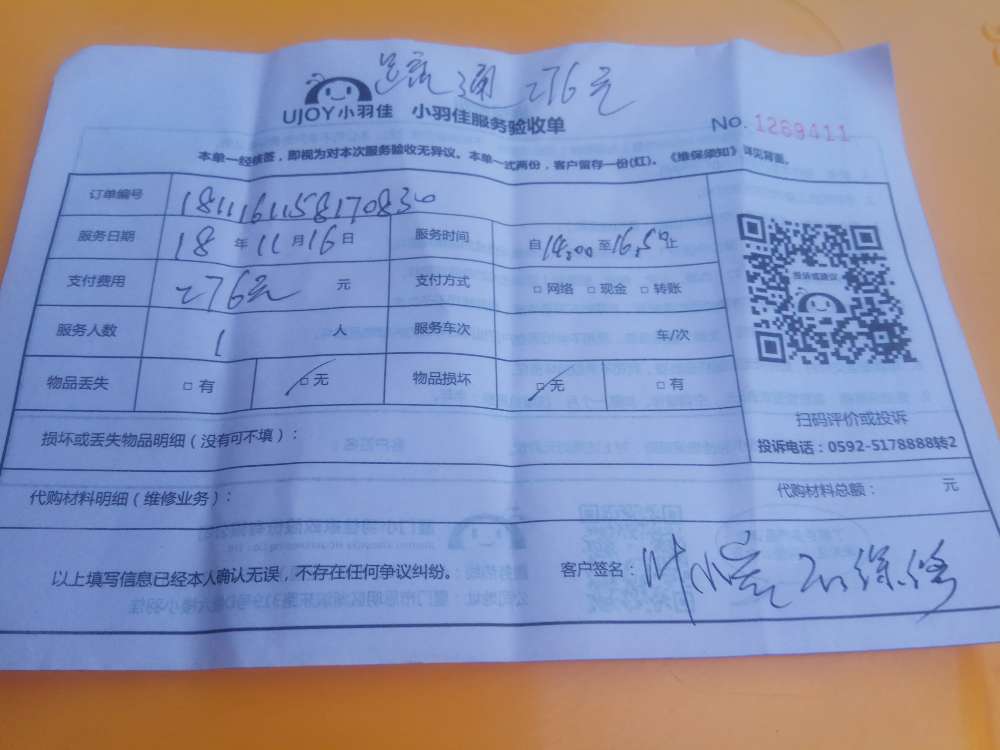 通 276元
UJOY小羽佳 小羽佳服务验收单
NO. 1269411
本单一经核签，即视为对本次服务验收无异议。本单一式两份，客户留存一份(红)。《维保须知》详见背面。
订单编号 1811161158170830
服务日期 18 年 11 月 16 日 服务时间 自 14:00 至 16:50 止
支付费用 276元 元 支付方式 □ 网络 □ 现金 □ 转账
投诉或建议
服务人数 1 人 服务车次 车/次
物品丢失 □ 有 □ 无 物品损坏 □ 无 □ 有
扫码评价或投诉
损坏或丢失物品明细（没有可不填）：
投诉电话：0592-5178888转2
代购材料明细（维修业务）：
代购材料总额： 元
以上填写信息已经本人确认无误，不存在任何争议纠纷。 客户签名：